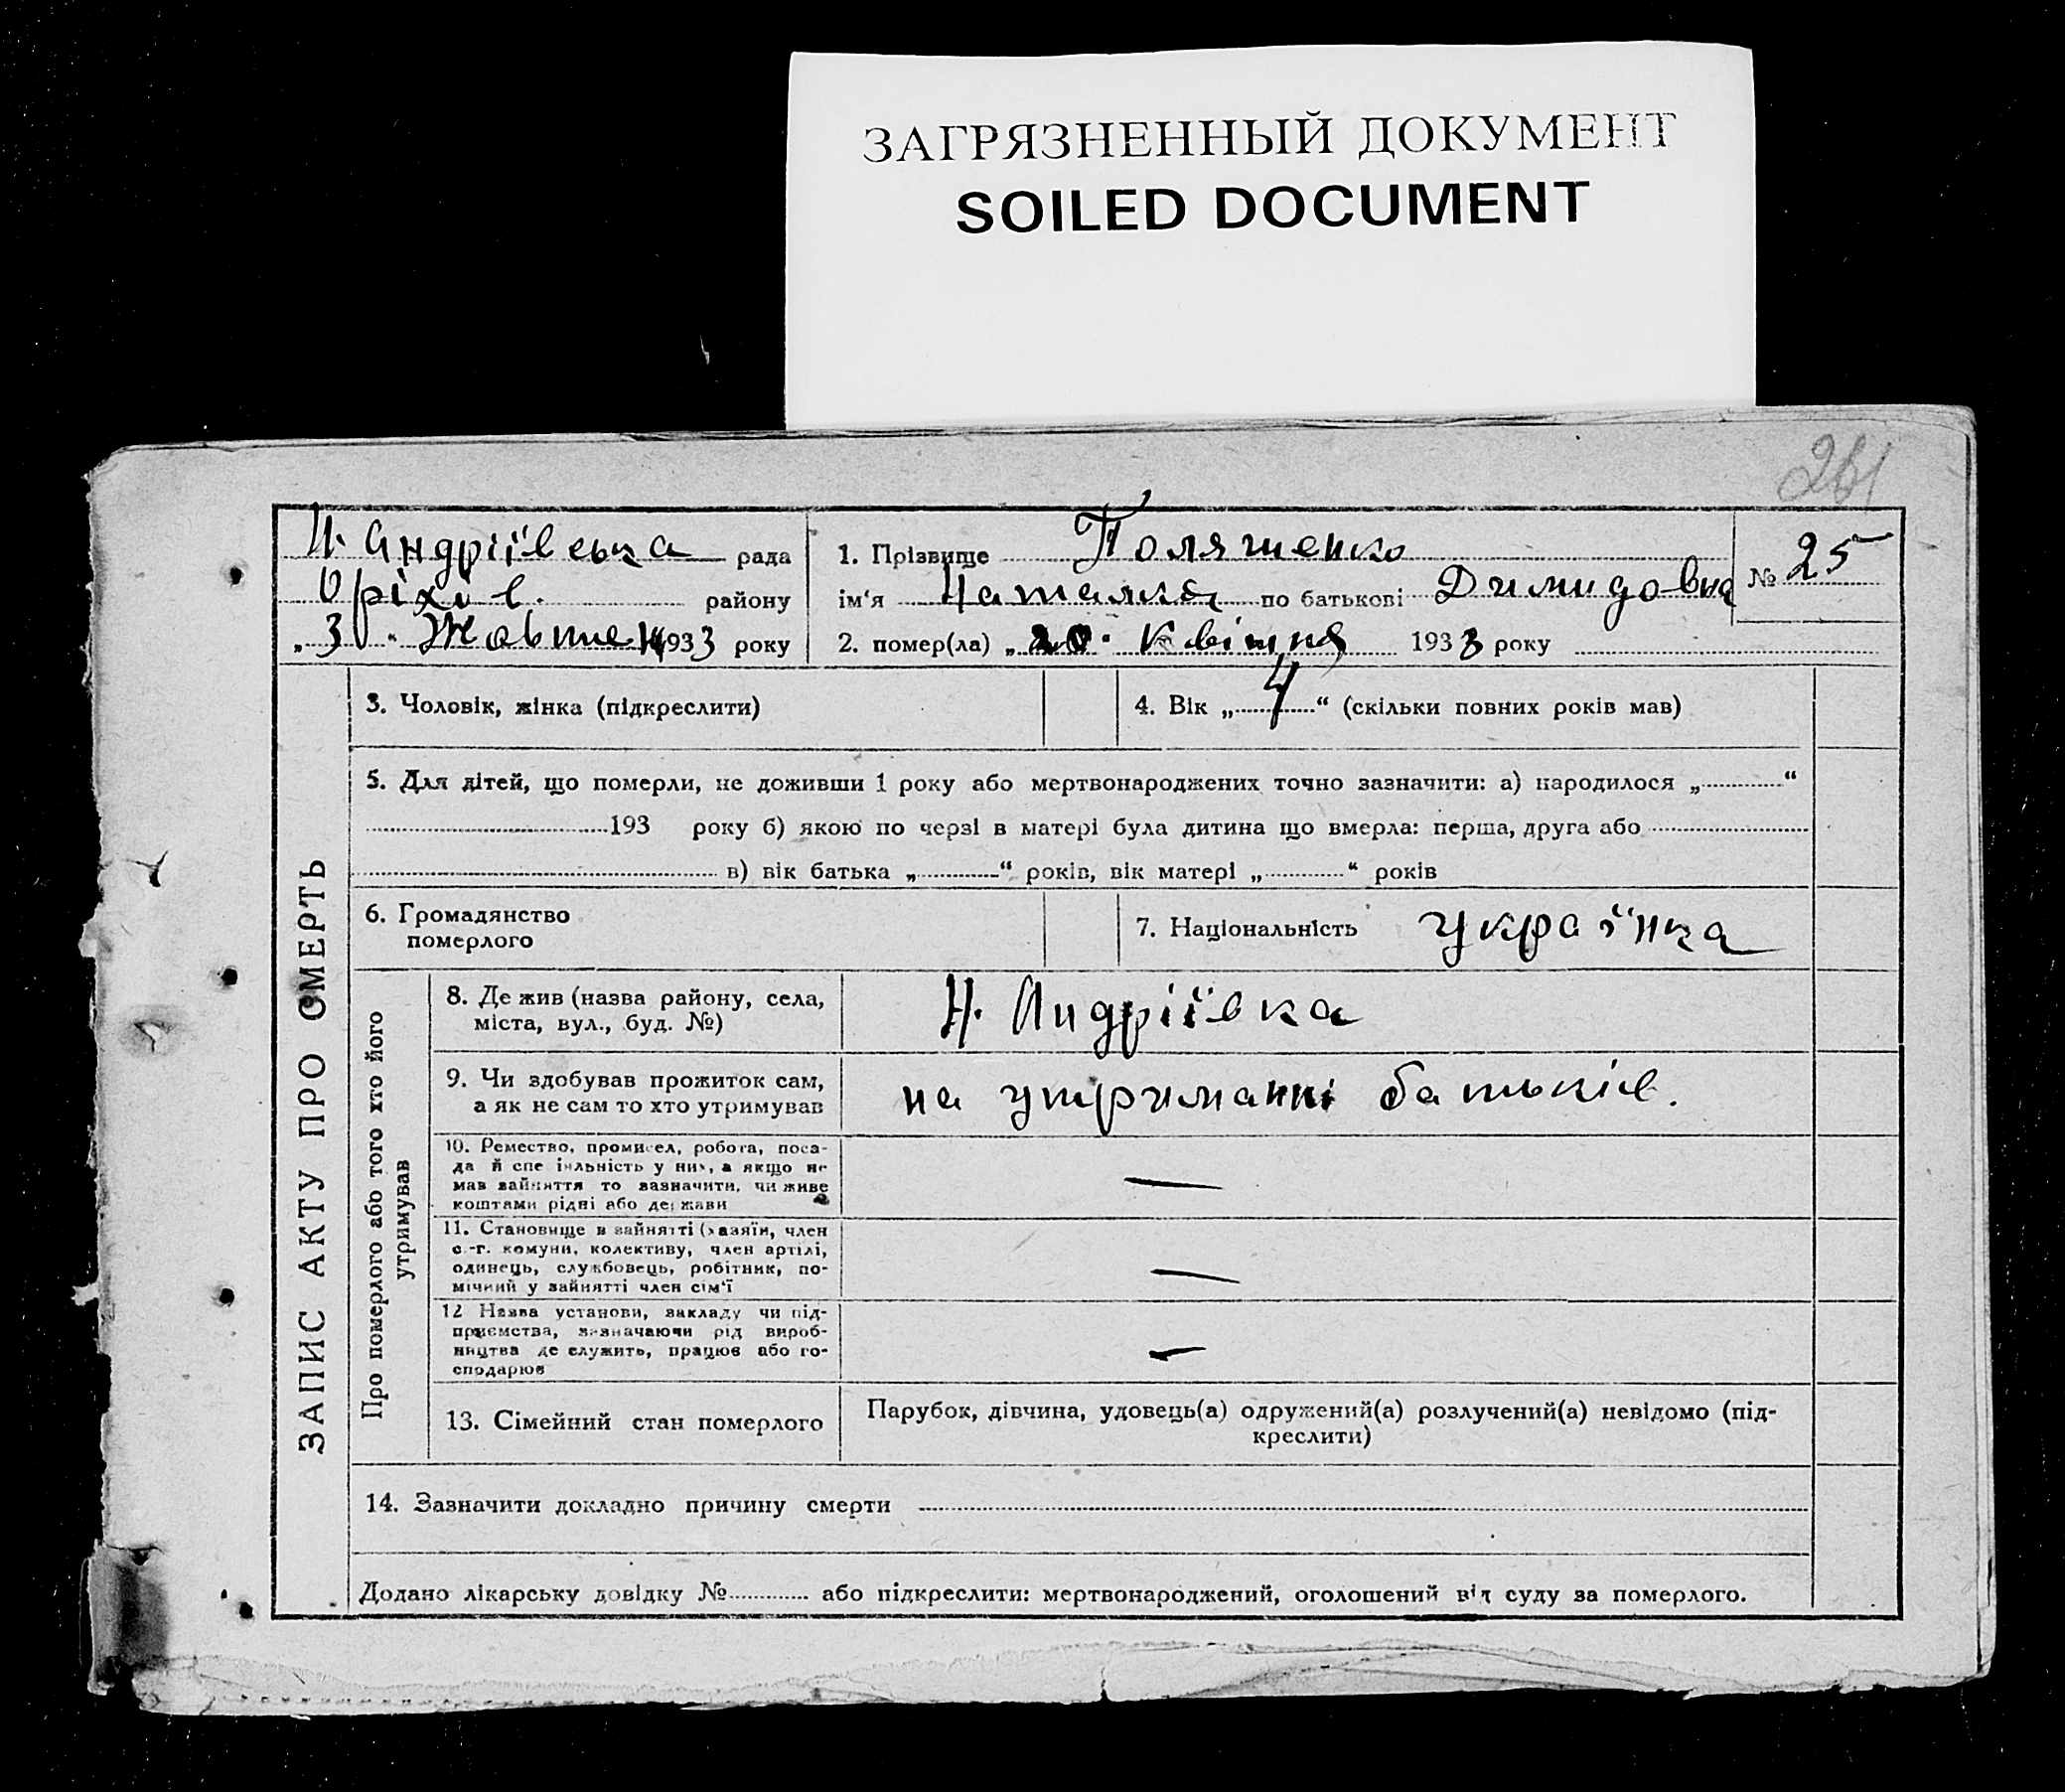 ЗАГРЯЗНЕННЫЙ ДОКУМЕНТ
SOILED DOCUMENT
261
Н. Андріївська рада
Оріхів. району
„ 3 “ Жовтня 1933 року
1. Прізвище Поляшенко
ім‘я Наталка по батькові Димидовна
№ 25
2. помер(ла) „ 20 “ Квітня 1933 року
ЗАПИС АКТУ ПРО СМЕРТЬ
3. Чоловік, жінка (підкреслити)
4. Вік „ 4 “ (скільки повних років мав)
5. Для дітей, що померли, не доживши 1 року або мертвонароджених точно зазначити: а) народилося „ “
193 року б) якою по черзі в матері була дитина що вмерла: перша, друга або
в) вік батька „ “ років, вік матері „ “ років
6. Громадянство
померлого
7. Національність Українка
Про померлого або того хто його
утримував
8. Де жив (назва району, села,
міста, вул., буд. №)
Н. Андріївка
9. Чи здобував прожиток сам,
а як не сам то хто утримував
на утриманні батьків.
10. Ремество, промисел, робота, поса-
да й спеціяльність у них, а якщо не
мав зайняття то зазначити, чи живе
коштами рідні або держави
—
11. Становище в зайнятті (хазяїн, член
с.-г. комуни, колективу, член артілі,
одинець, службовець, робітник, по-
мічний у зайнятті член сім‘ї
—
12 Назва установи, закладу чи під-
приємства, зазначаючи рід вироб-
ництва де служить, працює або го-
сподарює
—
13. Сімейний стан померлого
Парубок, дівчина, удовець(а) одружений(а) розлучений(а) невідомо (під-
креслити)
14. Зазначити докладно причину смерти
Додано лікарську довідку № або підкреслити: мертвонароджений, оголошений від суду за померлого.